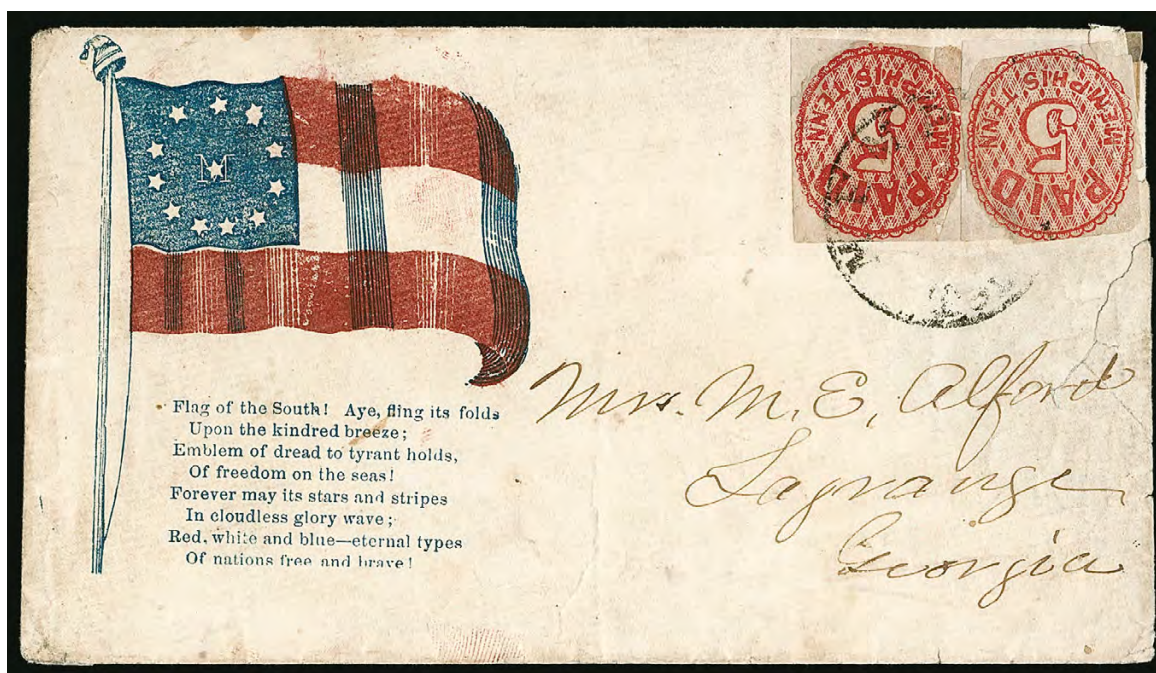 M
PAID
5
MEMPHIS TENN
PAID
5
MEMPHIS, TENN
Flag of the South! Aye, fling its folds
Upon the kindred breeze;
Emblem of dread to tyrant holds,
Of freedom on the seas!
Forever may its stars and stripes
In cloudless glory wave;
Red, white and blue—eternal types
Of nations free and brave!
Mrs. M. E. Alford
Lagrange
Georgia